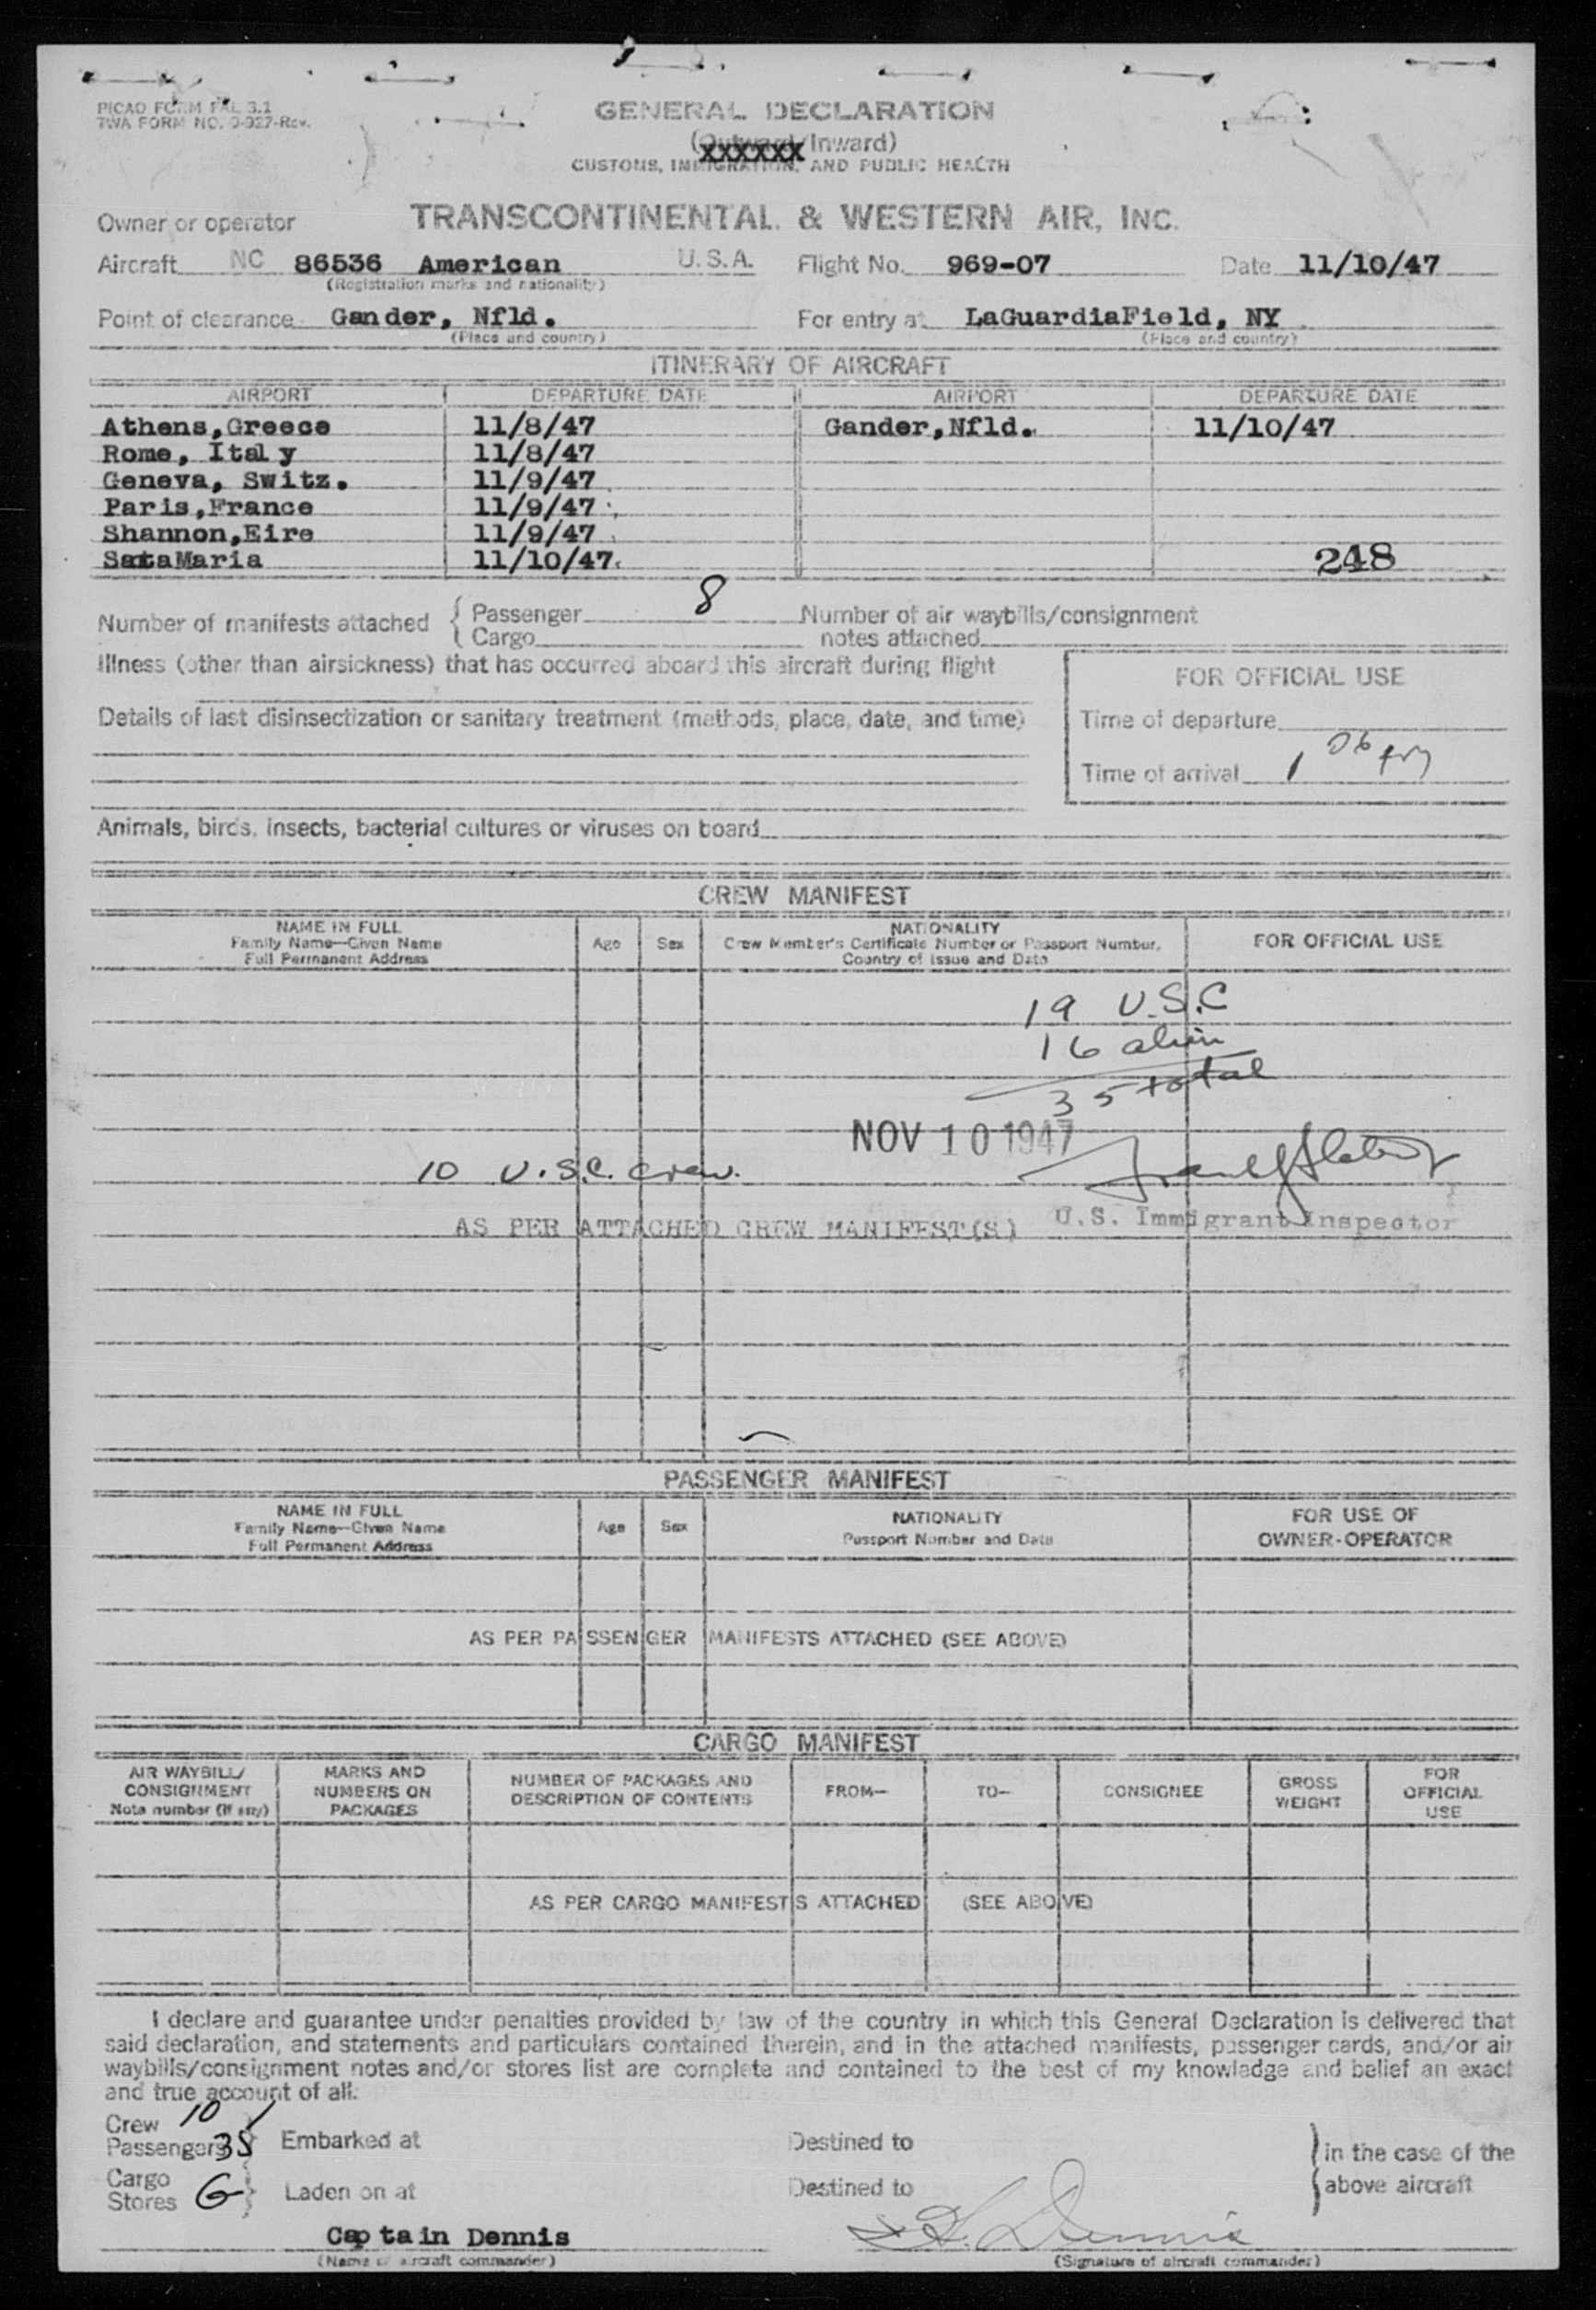 PICAO FORM FAL 3.1
TWA FORM NO. 0-927-Rev.
GENERAL DECLARATION
(Outward/Inward)
XXXXXX
CUSTOMS, IMMIGRATION, AND PUBLIC HEALTH
Owner or operator TRANSCONTINENTAL & WESTERN AIR, INC.
Aircraft NC 86536 American U.S.A. Flight No. 969-07 Date 11/10/47
(Registration marks and nationality)
Point of clearance Gander, Nfld. For entry at LaGuardiaField, NY
(Place and country) (Place and country)
ITINERARY OF AIRCRAFT
AIRPORT DEPARTURE DATE AIRPORT DEPARTURE DATE
Athens,Greece 11/8/47 Gander,Nfld. 11/10/47
Rome, Italy 11/8/47
Geneva, Switz. 11/9/47
Paris,France 11/9/47
Shannon,Eire 11/9/47
SataMaria 11/10/47 248
Number of manifests attached { Passenger 8 Number of air waybills/consignment
Cargo notes attached
Illness (other than airsickness) that has occurred aboard this aircraft during flight
FOR OFFICIAL USE
Details of last disinsectization or sanitary treatment (methods, place, date, and time)
Time of departure
Time of arrival 1 06 pm
Animals, birds, insects, bacterial cultures or viruses on board
CREW MANIFEST
NAME IN FULL
Family Name—Given Name
Full Permanent Address
Age Sex
NATIONALITY
Crew Member's Certificate Number or Passport Number,
Country of Issue and Date
FOR OFFICIAL USE
19 U.S.C
16 alien
35 total
NOV 10 1947
10 U.S.C. crew.
AS PER ATTACHED CREW MANIFEST(S) U.S. Immigrant Inspector
PASSENGER MANIFEST
NAME IN FULL
Family Name—Given Name
Full Permanent Address
Age Sex
NATIONALITY
Passport Number and Date
FOR USE OF
OWNER-OPERATOR
AS PER PASSENGER MANIFESTS ATTACHED (SEE ABOVE)
CARGO MANIFEST
AIR WAYBILL/
CONSIGNMENT
Note number (if any)
MARKS AND
NUMBERS ON
PACKAGES
NUMBER OF PACKAGES AND
DESCRIPTION OF CONTENTS
FROM— TO— CONSIGNEE
GROSS
WEIGHT
FOR
OFFICIAL
USE
AS PER CARGO MANIFESTS ATTACHED (SEE ABOVE)
I declare and guarantee under penalties provided by law of the country in which this General Declaration is delivered that
said declaration, and statements and particulars contained therein, and in the attached manifests, passenger cards, and/or air
waybills/consignment notes and/or stores list are complete and contained to the best of my knowledge and belief an exact
and true account of all.
Crew 10
Passengers 35 } Embarked at Destined to } in the case of the
Cargo
Stores G } Laden on at Destined to above aircraft
Captain Dennis Dennis
(Name of aircraft commander) (Signature of aircraft commander)